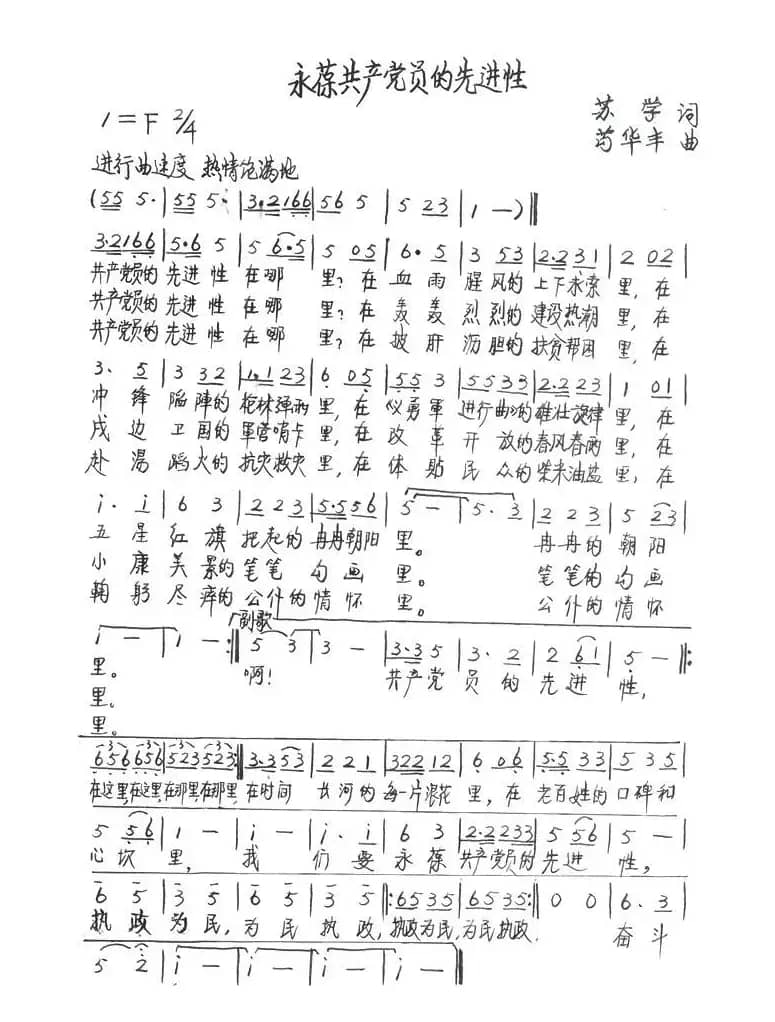 永葆共产党员的先进性
1=F 2/4
苏学 词
芍华丰 曲
进行曲速度 热情饱满地
(55 5· | 55 5· | 3·2166 | 56 5 | 5 23 | 1 — )‖
3·2166 | 5·6 5 | 5 6·5 | 5 05 | 6·5 | 3 53 | 2·231 | 2 02 |
共产党员的 先进 性 在哪 里?在 血雨 腥风的 上下求索 里,在
共产党员的 先进 性 在哪 里?在 轰轰 烈烈的 建设热潮 里,在
共产党员的 先进 性 在哪 里?在 披肝 沥胆的 扶贫帮困 里,在
3· 5 | 3 32 | 1·123 | 6 05 | 55 3 | 5533 | 2·223 | 1 01 |
冲锋 陷陣的 枪林弹雨 里,在 义勇軍 进行曲的 雄壮旋律 里,在
戍边 卫国的 軍营哨卡 里,在 改革 开放的 春风春雨 里,在
赴湯 蹈火的 抗灾救灾 里,在 体貼 民众的 柴米油盐 里,在
i· i | 6 3 | 2 23 | 5·556 | 5 — | 5· 3 | 2 23 | 5 23 |
五星 红旗 把起的 冉冉朝阳 里。 冉冉的 朝阳
小康 美景的 笔笔 勾画 里。 笔笔的 勾画
鞠躬 尽瘁的 公仆的 情怀 里。 公仆的 情怀
副歌
i — | i — :‖ 5 3 | 3 — | 3·35 | 3· 2 | 2 61 | 5 — ‖:
里。 啊! 共产党 员的 先进 性,
里。
里。
656 656 | 523 523 :‖ 3·353 | 2 21 | 32212 | 6 06 | 5·533 | 535
在这里,在这里,在那里,在那里 在时间 长河的 每一片浪花 里,在 老百姓的 口碑和
5 56 | 1 — | i — | i· i | 6 3 | 2·2233 | 5 56 | 5 — |
心坎 里, 我 们要 永葆 共产党员的 先进 性,
6 5 | 3 5 | 6 5 | 3 5 ‖: 6535 | 6535 :‖ 0 0 | 6· 3
执政 为民, 为民 执政, 执政为民,为民执政. 奋斗
5 2 | i — | i — | i — | i — ‖